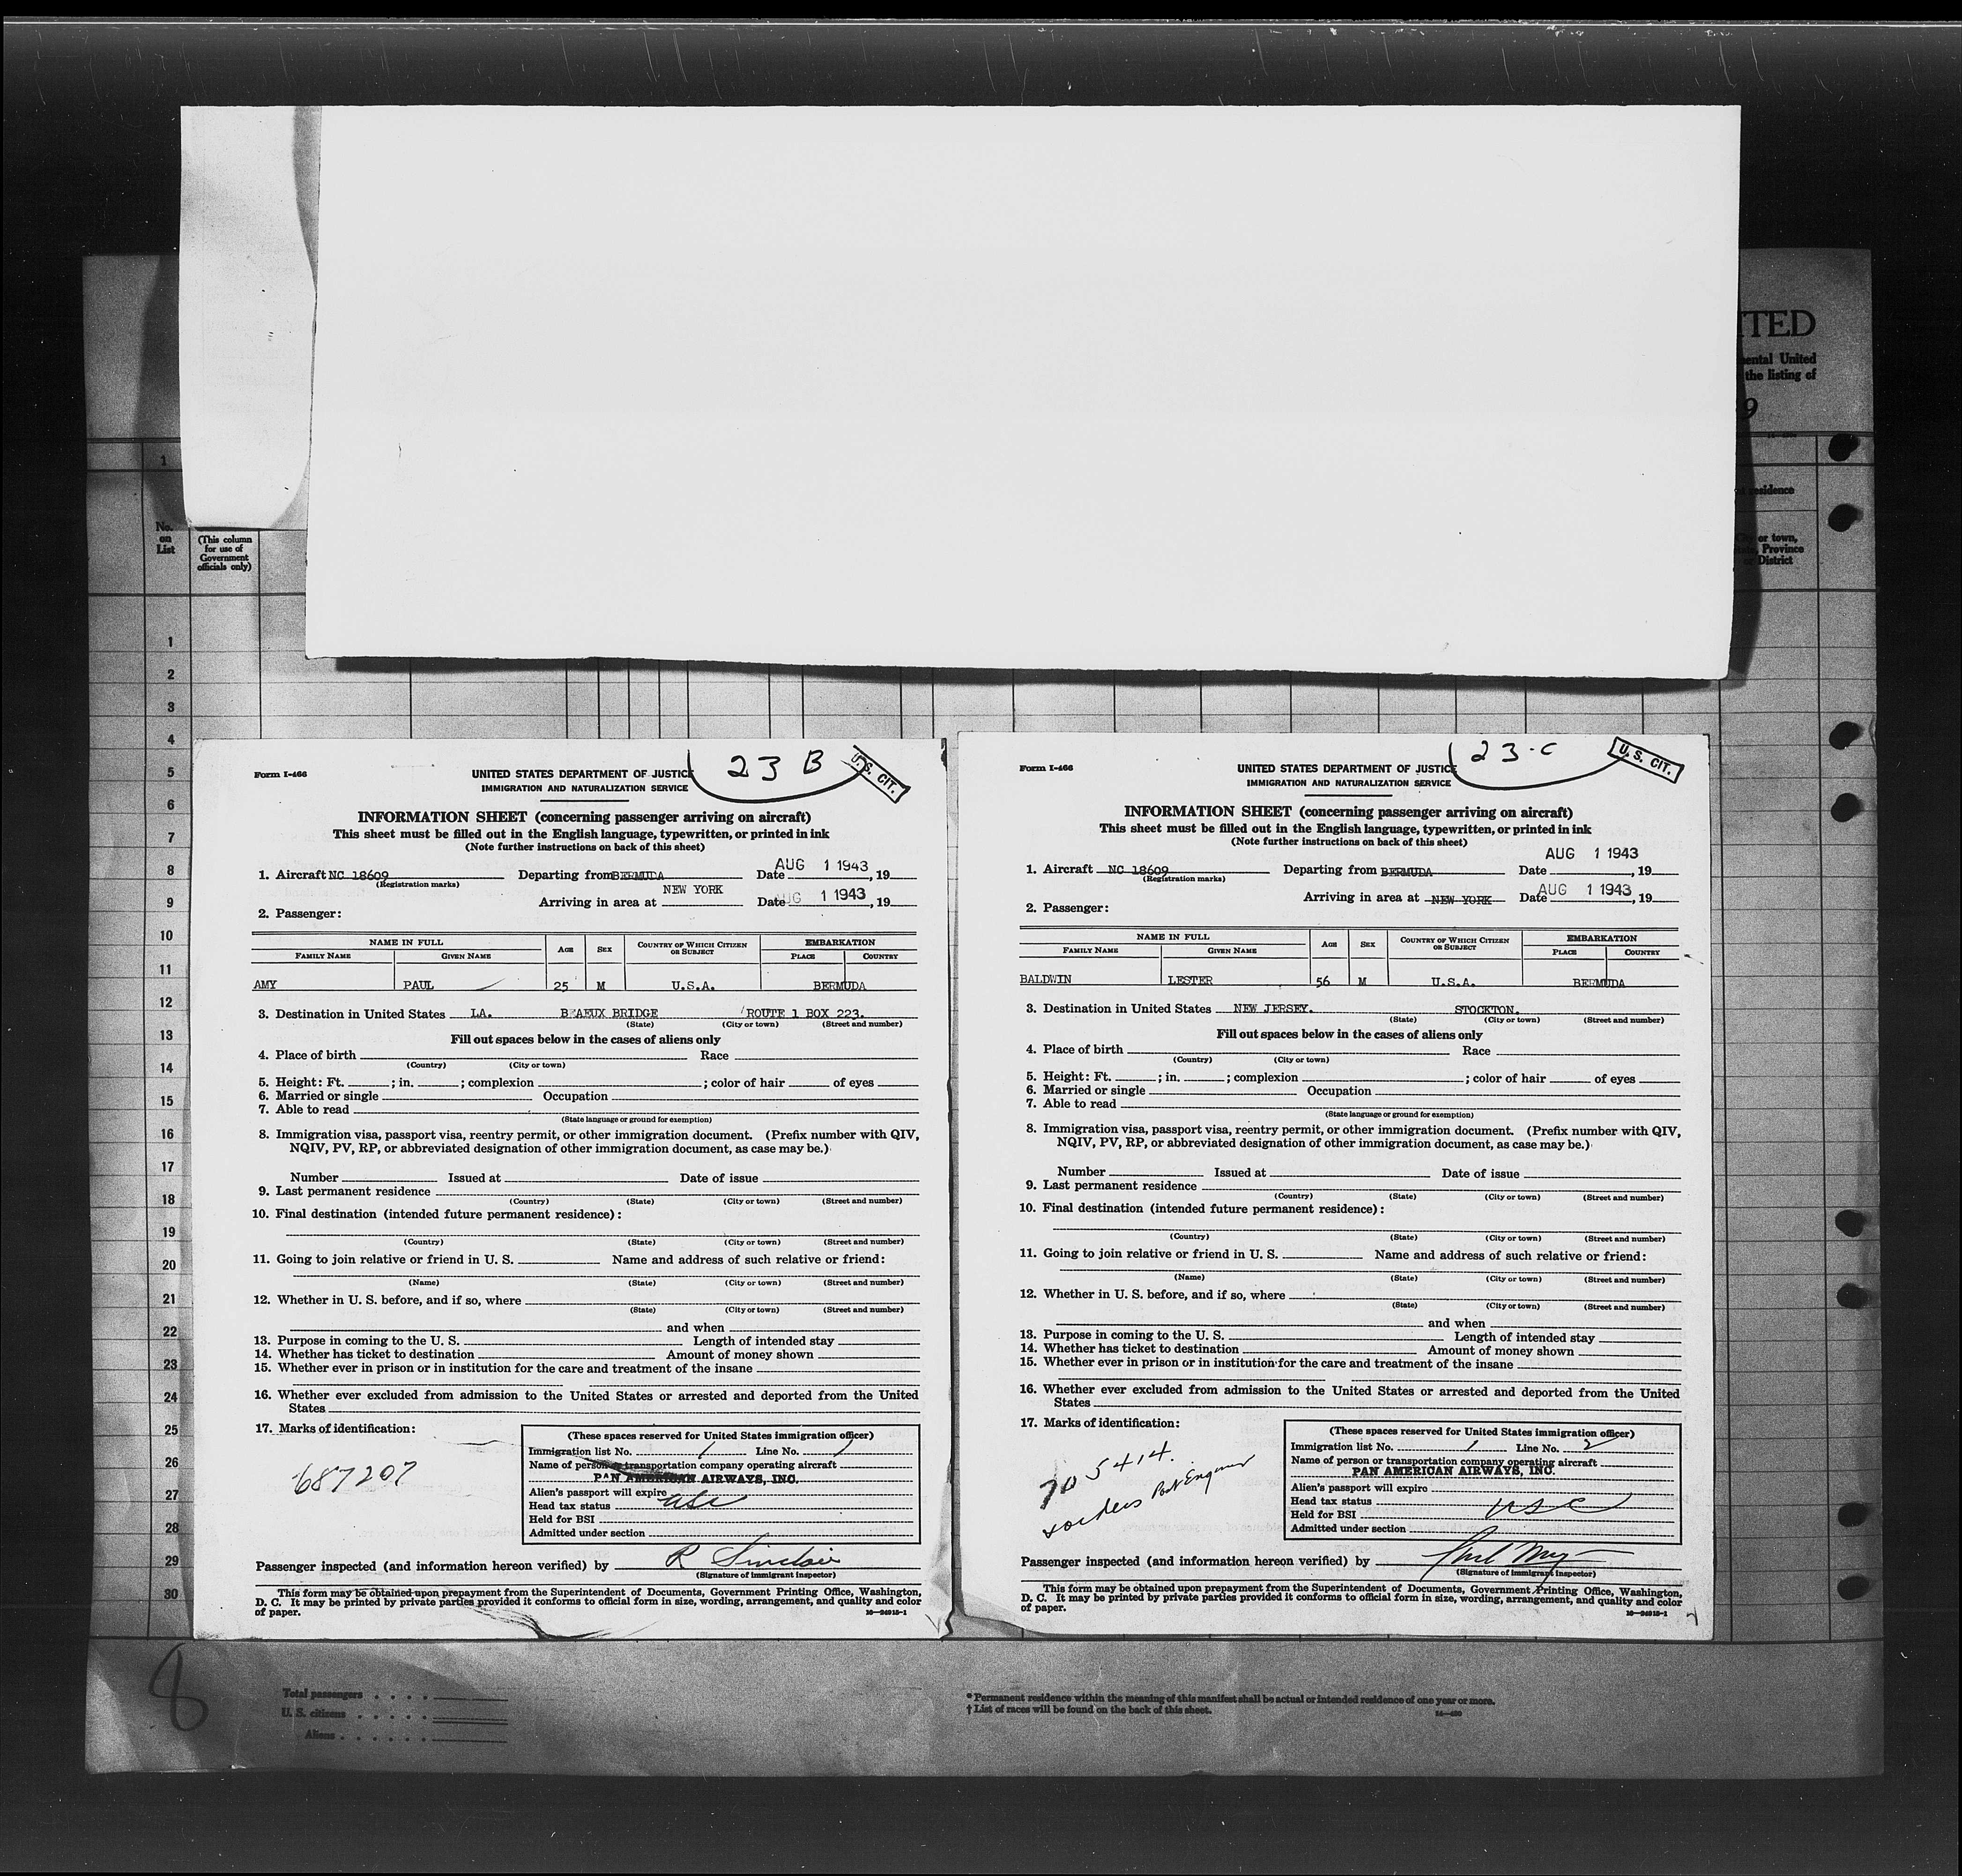 ITED
ental United
the listing of
9
1
residence
No.
on
List
(This column
for use of
Government
officials only)
or town,
Province
District
1
2
3
4
5
6
7
8
9
10
11
12
13
14
15
16
17
18
19
20
21
22
23
24
25
26
27
28
29
30
23 B
U.S. CIT.
Form I-466
UNITED STATES DEPARTMENT OF JUSTICE
IMMIGRATION AND NATURALIZATION SERVICE
INFORMATION SHEET (concerning passenger arriving on aircraft)
This sheet must be filled out in the English language, typewritten, or printed in ink
(Note further instructions on back of this sheet)
AUG 1 1943
1. Aircraft NC 18609 Departing from BERMUDA Date , 19
(Registration marks)
NEW YORK
Arriving in area at Date UG 1 1943 , 19
2. Passenger:
NAME IN FULL AGE SEX COUNTRY OF WHICH CITIZEN OR SUBJECT EMBARKATION
FAMILY NAME GIVEN NAME PLACE COUNTRY
AMY PAUL 25 M U.S.A. BERMUDA
3. Destination in United States LA. BEAEUX BRIDGE ROUTE 1 BOX 223.
(State) (City or town) (Street and number)
Fill out spaces below in the cases of aliens only
4. Place of birth Race
(Country) (City or town)
5. Height: Ft. ; in. ; complexion ; color of hair of eyes
6. Married or single Occupation
7. Able to read
(State language or ground for exemption)
8. Immigration visa, passport visa, reentry permit, or other immigration document. (Prefix number with QIV,
NQIV, PV, RP, or abbreviated designation of other immigration document, as case may be.)
Number Issued at Date of issue
9. Last permanent residence
(Country) (State) (City or town) (Street and number)
10. Final destination (intended future permanent residence):
(Country) (State) (City or town) (Street and number)
11. Going to join relative or friend in U. S. Name and address of such relative or friend:
(Name) (State) (City or town) (Street and number)
12. Whether in U. S. before, and if so, where
(State) (City or town) (Street and number)
and when
13. Purpose in coming to the U. S. Length of intended stay
14. Whether has ticket to destination Amount of money shown
15. Whether ever in prison or in institution for the care and treatment of the insane
16. Whether ever excluded from admission to the United States or arrested and deported from the United
States
17. Marks of identification:
687207
(These spaces reserved for United States immigration officer)
Immigration list No. 1 Line No. 1
Name of person or transportation company operating aircraft
PAN AMERICAN AIRWAYS, INC.
Alien's passport will expire
Head tax status usc
Held for BSI
Admitted under section
Passenger inspected (and information hereon verified) by R Sinclair
(Signature of immigrant inspector)
This form may be obtained upon prepayment from the Superintendent of Documents, Government Printing Office, Washington,
D. C. It may be printed by private parties provided it conforms to official form in size, wording, arrangement, and quality and color
of paper. 16—24915-1
23-C
U.S. CIT.
Form I-466
UNITED STATES DEPARTMENT OF JUSTICE
IMMIGRATION AND NATURALIZATION SERVICE
INFORMATION SHEET (concerning passenger arriving on aircraft)
This sheet must be filled out in the English language, typewritten, or printed in ink
(Note further instructions on back of this sheet)
AUG 1 1943
1. Aircraft NC 18609 Departing from BERMUDA Date , 19
(Registration marks)
Arriving in area at NEW YORK Date AUG 1 1943 , 19
2. Passenger:
NAME IN FULL AGE SEX COUNTRY OF WHICH CITIZEN OR SUBJECT EMBARKATION
FAMILY NAME GIVEN NAME PLACE COUNTRY
BALDWIN LESTER 56 M U.S.A. BERMUDA
3. Destination in United States NEW JERSEY. STOCKTON.
(State) (City or town) (Street and number)
Fill out spaces below in the cases of aliens only
4. Place of birth Race
(Country) (City or town)
5. Height: Ft. ; in. ; complexion ; color of hair of eyes
6. Married or single Occupation
7. Able to read
(State language or ground for exemption)
8. Immigration visa, passport visa, reentry permit, or other immigration document. (Prefix number with QIV,
NQIV, PV, RP, or abbreviated designation of other immigration document, as case may be.)
Number Issued at Date of issue
9. Last permanent residence
(Country) (State) (City or town) (Street and number)
10. Final destination (intended future permanent residence):
(Country) (State) (City or town) (Street and number)
11. Going to join relative or friend in U. S. Name and address of such relative or friend:
(Name) (State) (City or town) (Street and number)
12. Whether in U. S. before, and if so, where
(State) (City or town) (Street and number)
and when
13. Purpose in coming to the U. S. Length of intended stay
14. Whether has ticket to destination Amount of money shown
15. Whether ever in prison or in institution for the care and treatment of the insane
16. Whether ever excluded from admission to the United States or arrested and deported from the United
States
17. Marks of identification:
705414.
(These spaces reserved for United States immigration officer)
Immigration list No. 1 Line No. 2
Name of person or transportation company operating aircraft
PAN AMERICAN AIRWAYS, INC.
Alien's passport will expire
Head tax status usc
Held for BSI
Admitted under section
Passenger inspected (and information hereon verified) by
(Signature of immigrant inspector)
This form may be obtained upon prepayment from the Superintendent of Documents, Government Printing Office, Washington,
D. C. It may be printed by private parties provided it conforms to official form in size, wording, arrangement, and quality and color
of paper. 16—24915-1
8
Total passengers
U. S. citizens
Aliens
* Permanent residence within the meaning of this manifest shall be actual or intended residence of one year or more.
† List of races will be found on the back of this sheet.